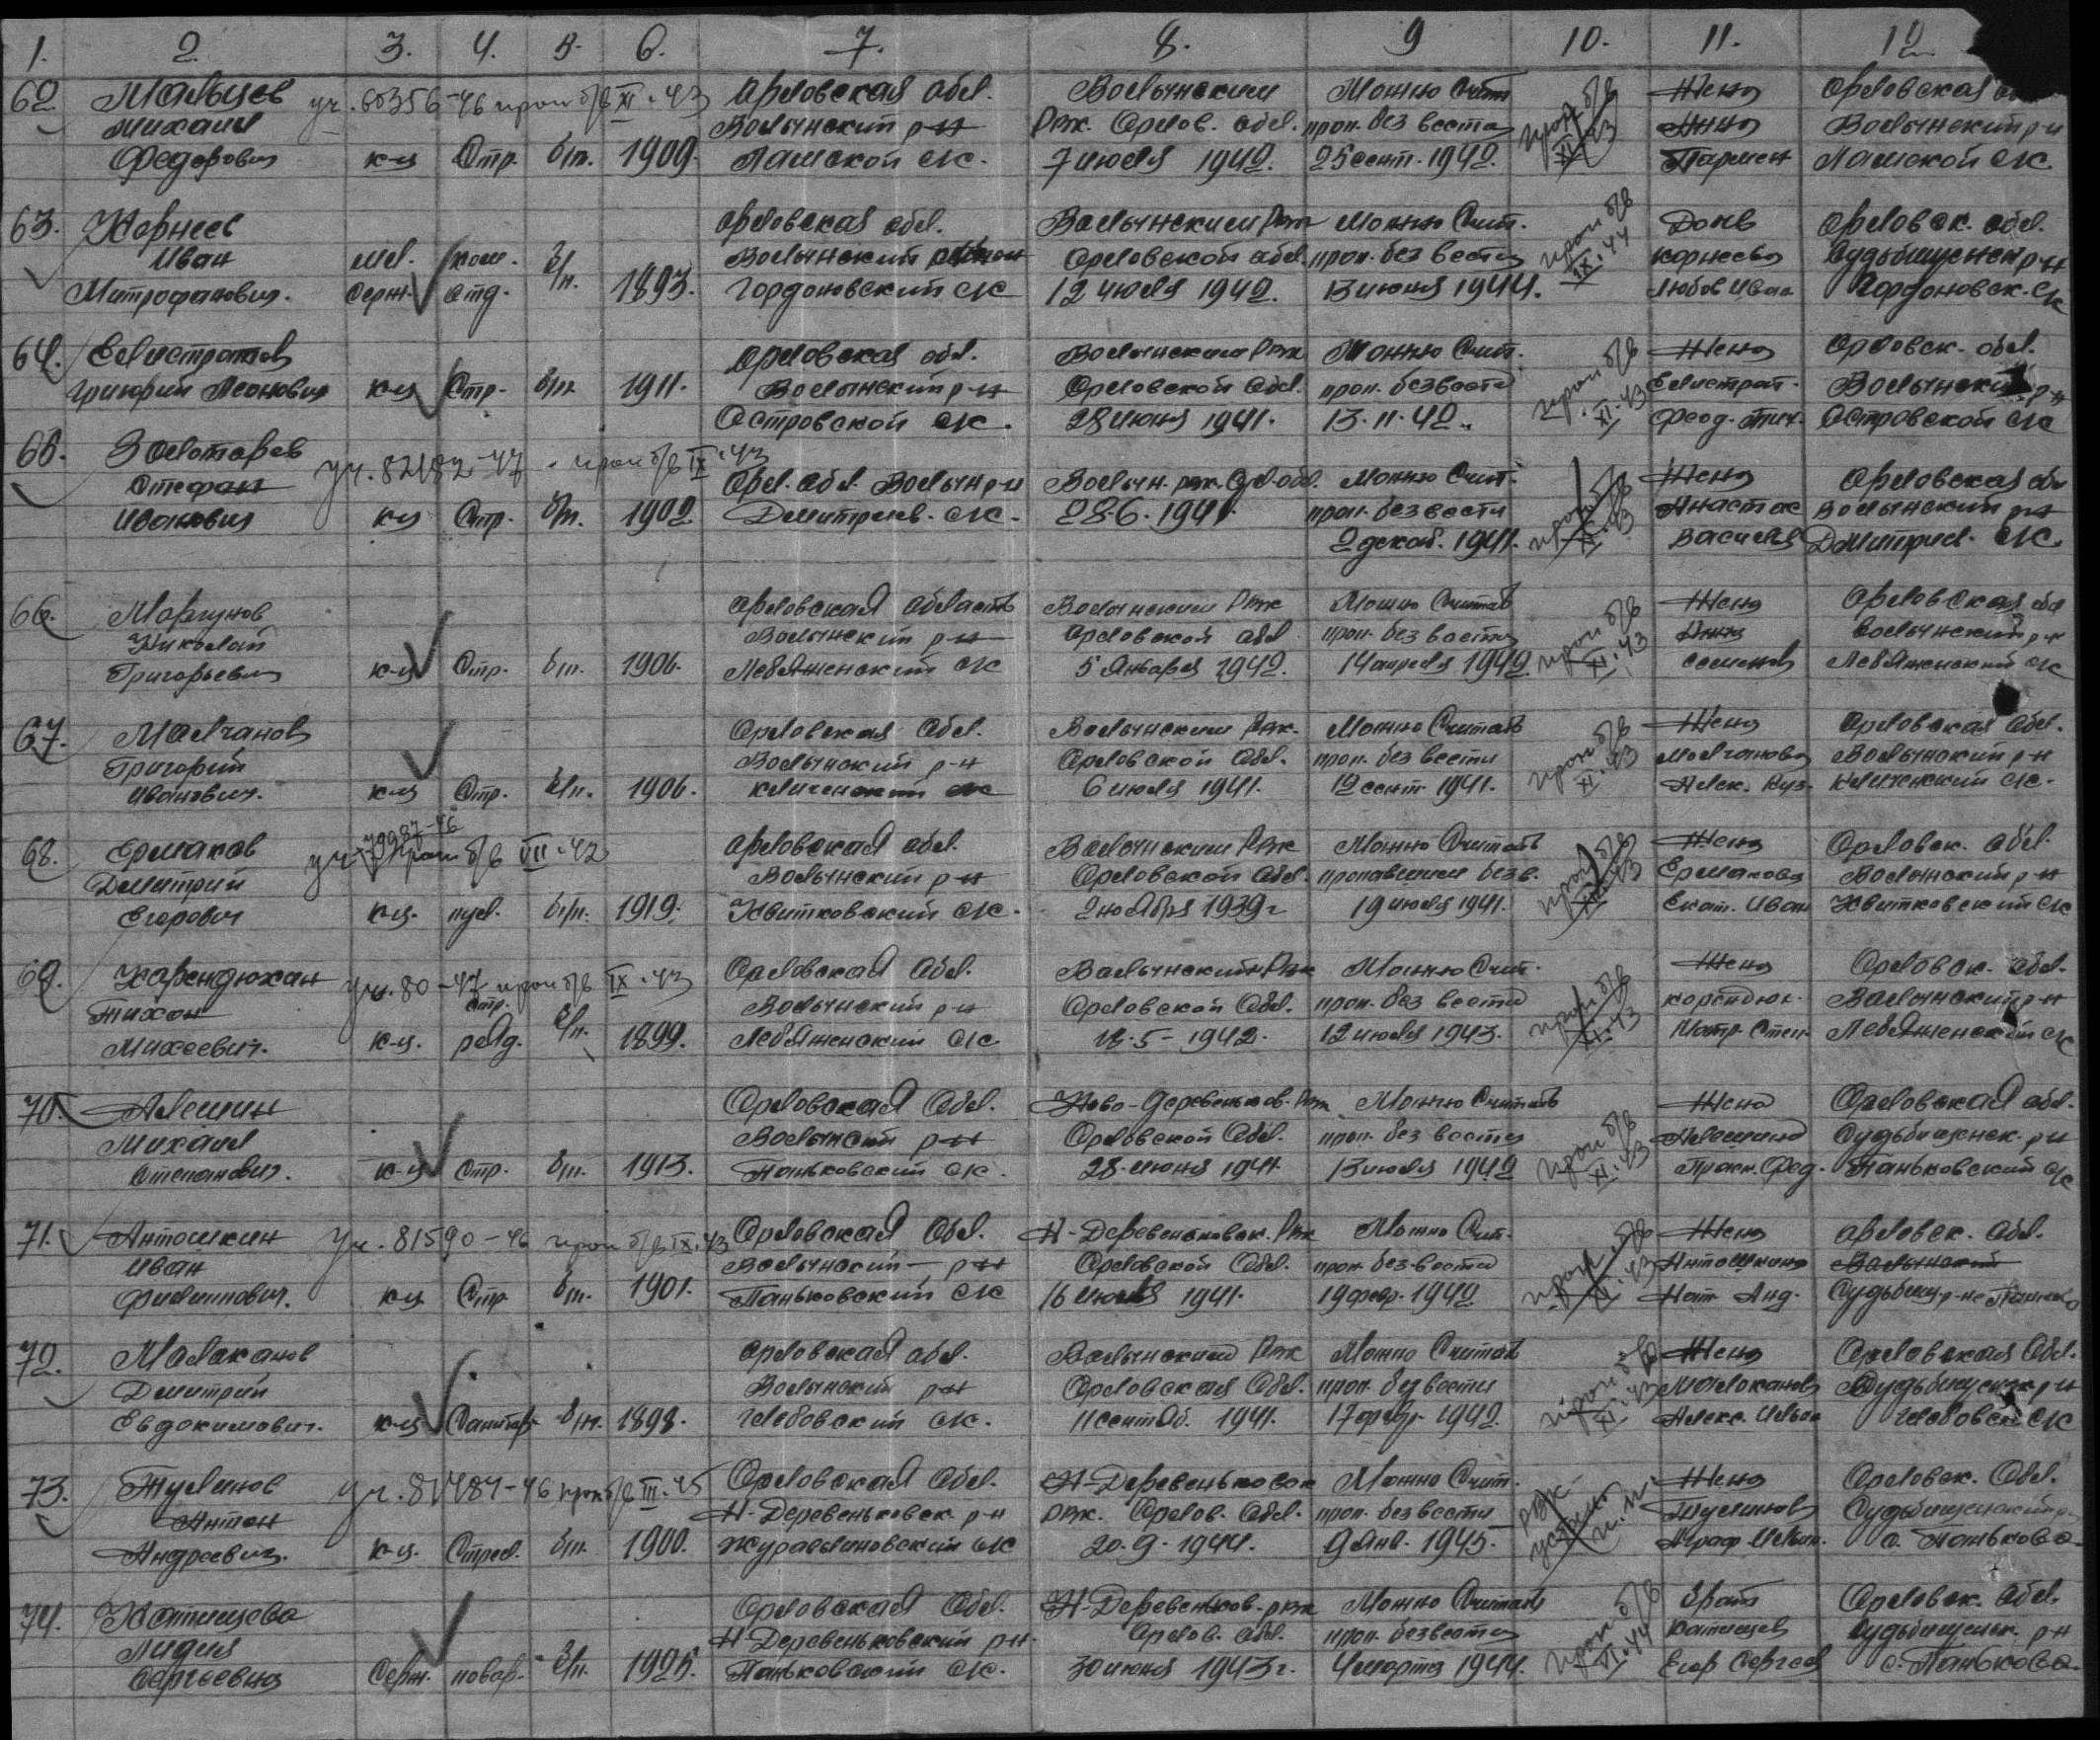 1. 2. 3. 4. 5. 6. 7. 8. 9 10. 11. 12
62 Мальцев уч. 60356-46 проп б/в XI-43 Орловская обл. Волынским Можно Счит проп б/в Жена Орловская
Михаил Волынский р-н Рвк. Орлов. обл. проп. без вести XI-43 Анна Волынский р-н
Федорович к-ц Стр. б/п. 1909. Ламской с/с. 7 июля 1942. 25 сент. 1942. Пармен Ламской с/с.
63. Корнеев Орловская обл. Волынским Рвк Можно Счит. проп б/в Дочь Орловск. обл.
Иван мл. ком. б/п. Волынский район Орловской обл. проп. без вести IX-44 Корнеева Судьбищенск р-н
Митрофанович. Серж. отд. 1893. Гордоновский с/с 12 июля 1942. 13 июня 1944. Любов Иван Гордоновск. с/с
64. Елистратов Орловская обл. Волынским Рвк Можно Счит. проп б/в Жена Орловск. обл.
Григорий Леонович к-ц Стр. б/п 1911. Волынский р-н Орловской обл. проп. без вести XI-43 Елистрат. Волынский р-н
Островской с/с. 28 июня 1941. 13.11.42. Феод. Островской с/с
65. Золотарев уч. 82182-47 проп б/в IX-43
Стефан Орл. обл. Волын р-н Волын. рвк. Орл. обл. Можно Счит. проп б/в Жена Орловская обл
Иванович к-ц Стр. б/п. 1902 Дмитриев. с/с. 28.6.1941. проп. без вести Анастас Волынский р-н
2 декаб. 1941. Василев Дмитриев. с/с.
66. Моргунов Орловская область Волынским Рвк Можно Считать проп б/в Жена Орловская обл
Николай Волынский р-н Орловской обл проп. без вести XI-43 Анна Волынский р-н
Григорьевич к-ц Стр. б/п. 1906. Лебяженский с/с 5 января 1942. 14 апреля 1942 Семенов Лебяженский с/с
67. Молчанов Орловская обл. Волынским Рвк. Можно Считать проп б/в Жена Орловская обл.
Григорий Волынский р-н Орловской обл. проп. без вести XI-43 Молчанова Волынский р-н
Иванович. к-ц Стр. б/п. 1906. с/с 6 июля 1941. 12 сент. 1941. Алек. Куз. с/с.
68. Ермаков уч. 79987-46 проп б/в VII-42 Орловская обл. Волынским Рвк Можно Считать проп б/в Жена Орловск. обл.
Дмитрий Волынский р-н Орловской обл. пропавшим без в. Ермакова Волынский р-н
Егорович к-ц. пул. б/п. 1919. Хвитковский с/с. 2 ноября 1939 г 19 июля 1941. Екат. Иван Хвитковский с/с
69. Карендюхан уч. 80-47 проп б/в IX-43 Орловская обл. Волынский Рвк Можно Счит. проп б/в Жена Орловск. обл.
Тихон стр. б/п. Волынский р-н Орловской обл. проп. без вести Корендюх. Волынский р-н
Михеевич. к-ц. ряд. 1899. Лебяженский с/с 18-5-1942. 12 июля 1943. Матр. Степ. Лебяженский с/с
70. Алешин Орловская обл. Ново-Деревеньков. Рвк Можно Считать проп б/в Жена Орловская обл.
Михаил Волынский р-н Орловской обл. проп. без вести XI-43 Алешина Судьбищенск. р-н
Степанович. к-ц Стр. б/п. 1913. Паньковский с/с. 28 июня 1941 13 июля 1942 Праск. Фед. Паньковский с/с
71. Антошкин уч. 81590-46 проп б/в IX-43 Орловская обл. Н-Деревеньковск. Рвк Можно Счит. проп. б/в Жена Орловск. обл.
Иван Волынский р-н Орловской обл. проп. без вести Антошкина Волынский
Филиппович. к-ц Стр. б/п. 1901. Паньковский с/с 16 июля 1941. 19 февр. 1942 Нат. Анд. Судьбищ. р-н с Паньково
72. Малаканов Орловская обл. Волынский Рвк Можно Считать проп б/в Жена Орловская обл.
Дмитрий Волынский р-н Орловская обл. проп. без вести XI-43 Малоканова Судьбищенск р-н
Евдокимович. к-ц Санитар б/п. 1898. с/с. 11 сентяб. 1941. 17 февр. 1942. Алекс. Ильин с/с
73. Тулинов уч. 81484-46 проп б/в III-45 Орловская обл. Н-Деревеньковск Можно Счит. рвк Жена Орловск. обл.
Антон Н-Деревеньковск. р-н рвк. Орлов. обл. проп. без вести Тулинова Судьбищенский р.
Андреевич. к-ц. Стрел. б/п. 1900. Журавлиновский с/с 20.9.1944. 9 янв. 1945. Аграф. с. Паньково.
74. Катышева Орловская обл. Н-Деревеньков. рвк Можно Считать проп б/в Брат Орловск. обл.
Лидия Н-Деревеньковский р-н. Орлов. обл. проп. без вести VI-44 Катышев Судьбищенск. р-н
Сергеевна Серж. повар. б/п. 1925. Паньковский с/с. 30 июня 1943 г. 4 марта 1944. Егор Сергеев с. Паньково.